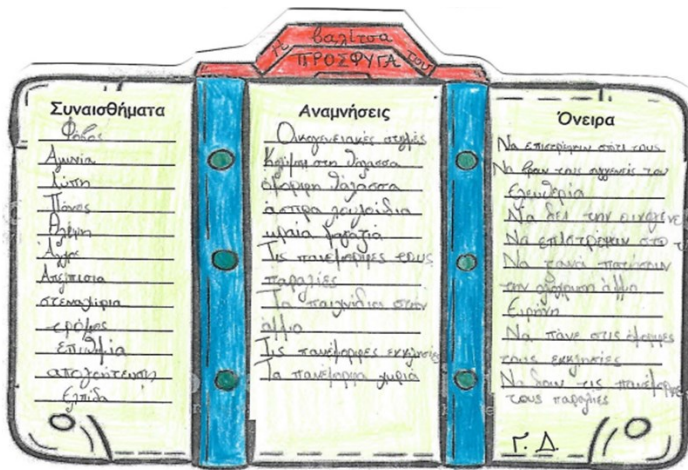 Η βαλίτσα του
ΠΡΟΣΦΥΓΑ
Συναισθήματα
Φόβος
Αγωνία
Λύπη
Πόνος
Θλίψη
Άγχος
Απελπισία
στεναχώρια
τρόμος
επιθυμία
Ελπίδα
Αναμνήσεις
Οικογενειακές στιγμές
Κολύμπι στη θάλασσα
όμορφη θάλασσα
άσπρα λουλούδια
Τις πανέμορφες τους
παραλίες
Τα παιχνίδια στην
άμμο
Τις πανέμορφες εκκλησίες
Τα πανέμορφα χωριά
Όνειρα
Να επιστρέψουν σπίτι τους
Να βρουν τους συγγενείς του
Ελευθερία
Να δει την οικογένε
Να επιστρέψουν στο τ
Να ξανά πατήσουν
την άμμο
Ειρήνη
Να πάνε στις όμορφες
τους εκκλησίες
Να δουν τις πανέμορφες
τους παραλίες
Γ. Δ.